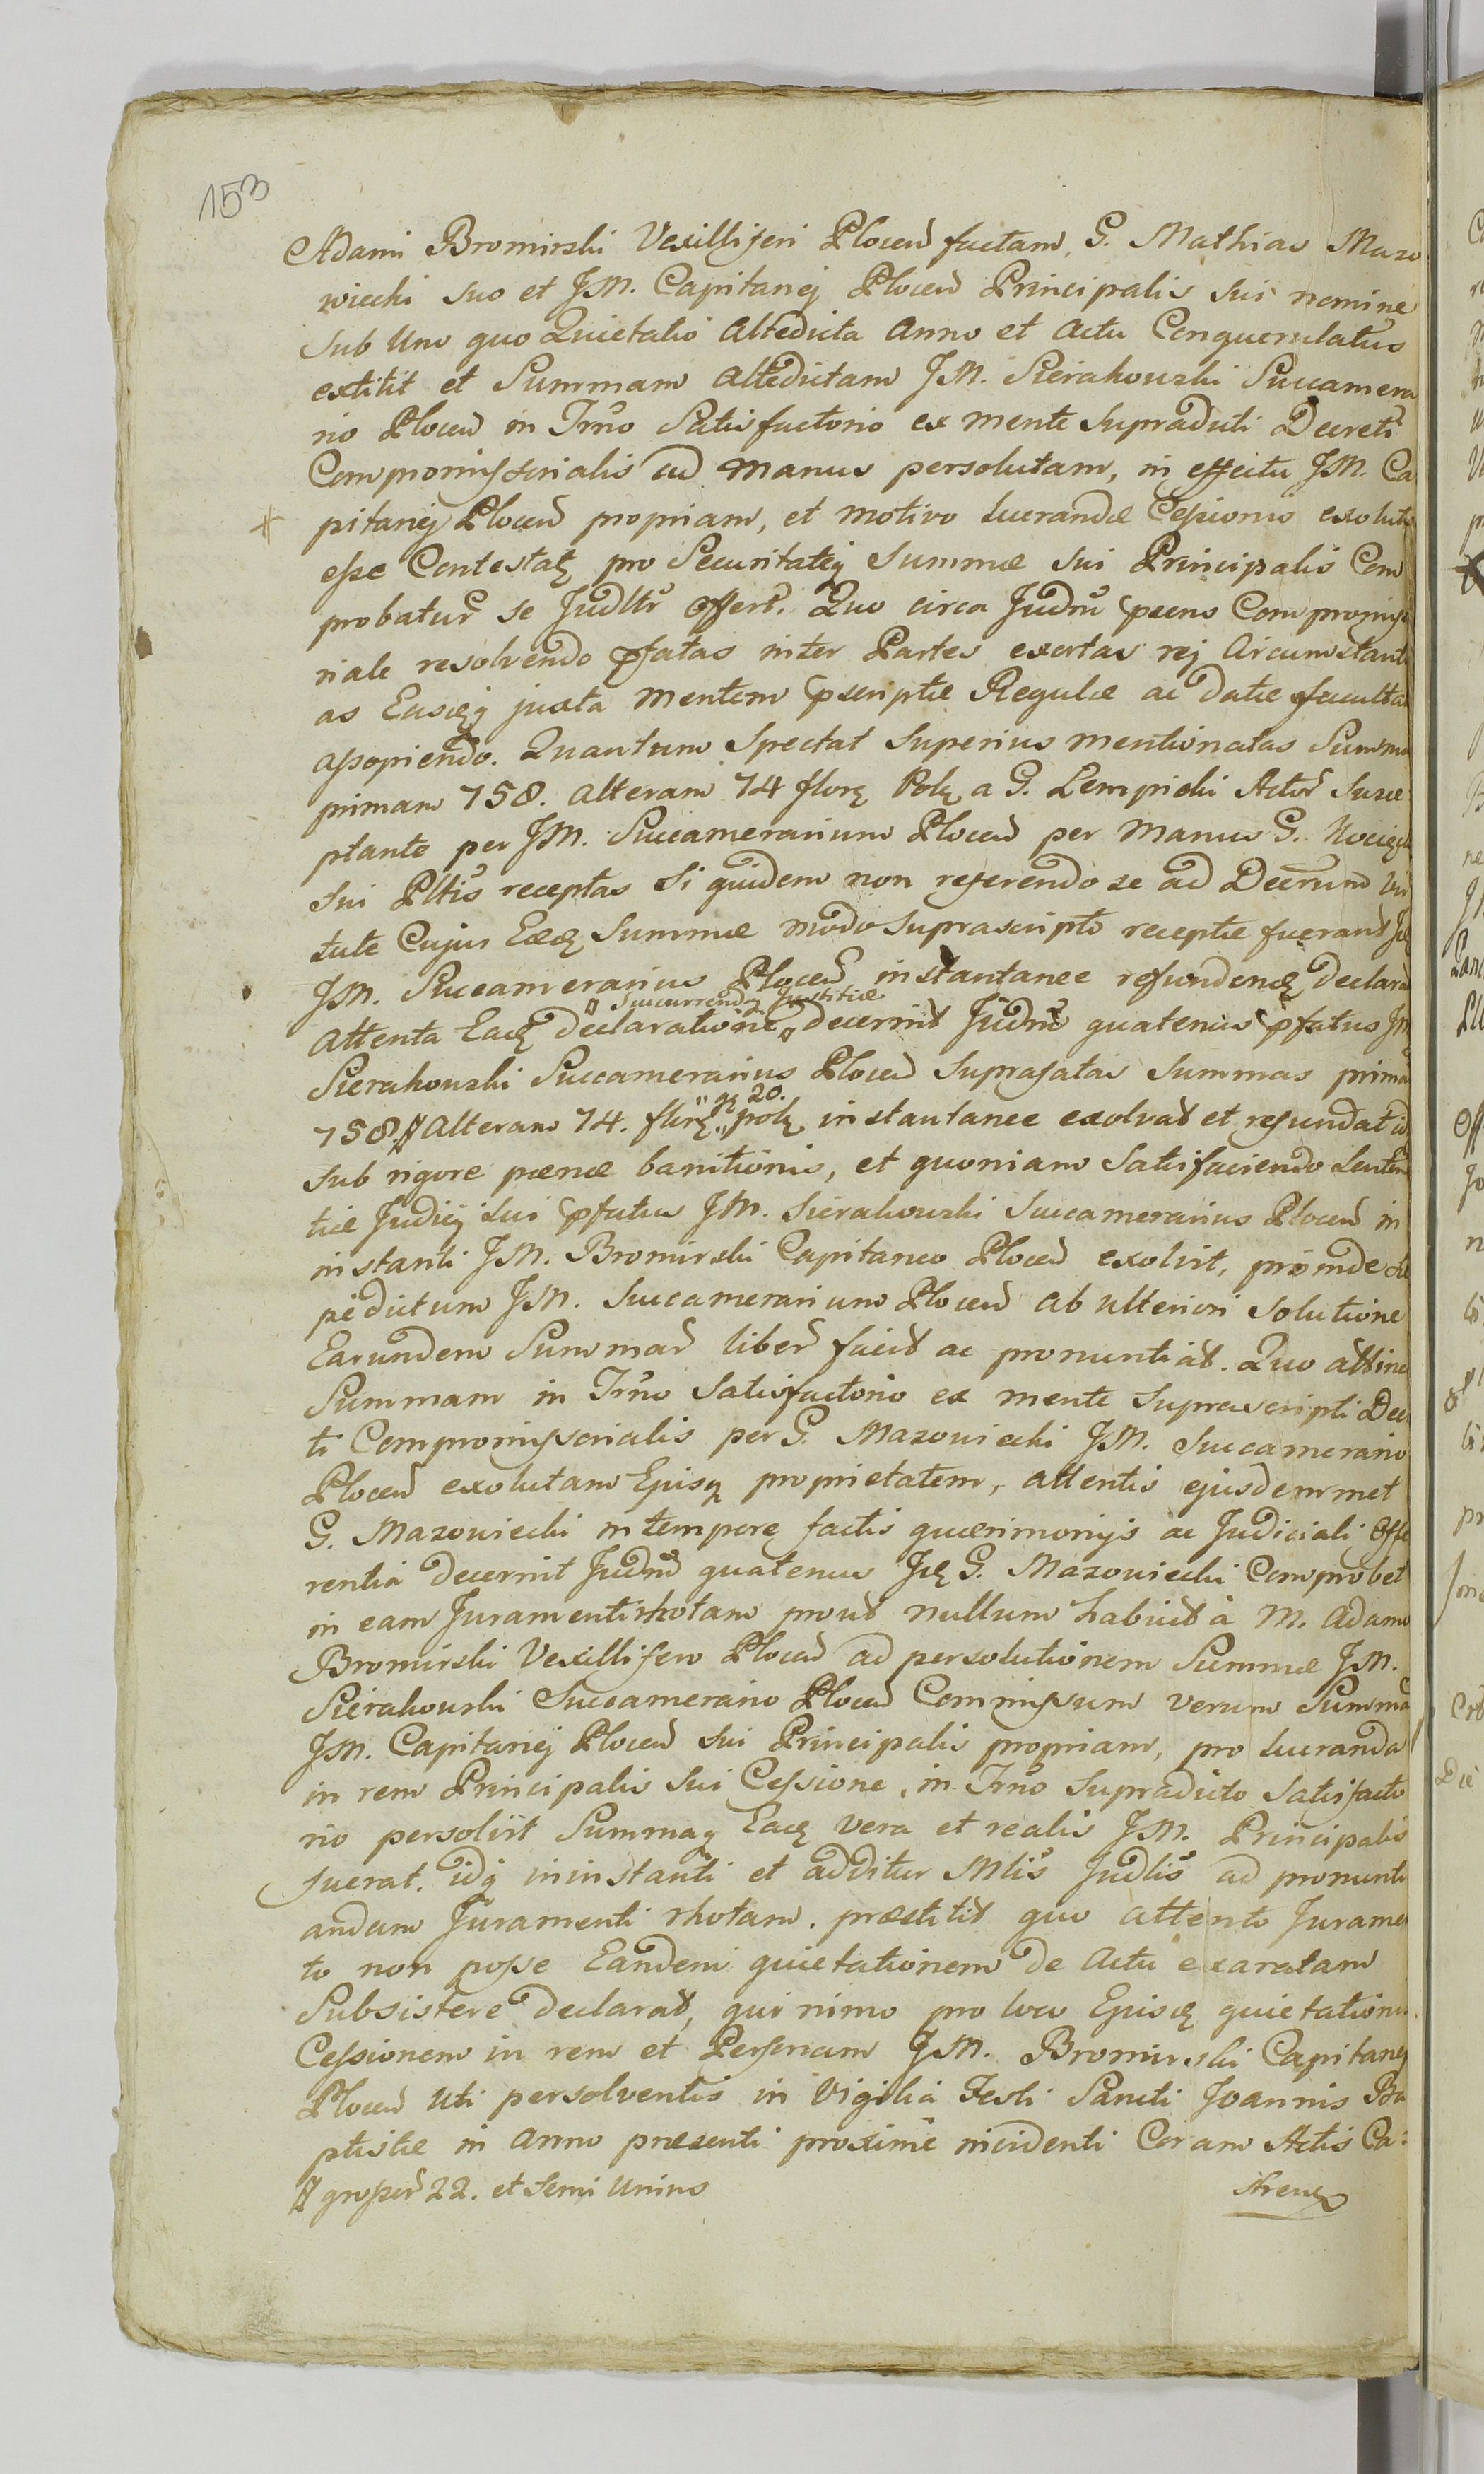 153
Adami Bromirski Vexilliferi Plocen factam, G. Mathias Mazo
wiecki suo et JM. Capitanej Plocen Principalis sui nomine
sub Uno quo Quietatio altedicta Anno et Actu Conquerulatus
extitit et Summam altedictam JM. Sierakowski Succamera
rio Plocen in Trno Satisfactorio ex mente Supradicti Decreti
Compromissorialis ad manus persolutam, in effectu JM. Ca
pitanej Plocen propriam, et motivo lucrandæ Cessionis exolut
esse Contestat pro Securitateq Summæ sui Principalis Com
probatur se Judltr offert. Quo circa Judm præns Compromisso
riale resolvendo pfatas inter Partes exortas rej Circumstanti
as Easq juxta mentem pscriptæ Regulæ ac datæ facultat
assopiendo. Quantum Spectat Superius mentionatas Summa
primam 758. alteram 74 flor Pol a G. Lempicki Actor Susce
ptante per JM. Succamerarium Plocen per manus G.
sui Pltis receptas Si quidem non referendo se ad Decrum Vir
tute Cujus Eæd Summæ modo suprascripto receptæ fuerant
JM. Succamerarius Plocen instantanee refundend declarat
Succurrendo Justitiæ
Attenta Ead declaratione decernit Judm quatenus pfatus JM
Sierakowski Succamerarius Plocen Suprafatas Summas prima
gr 20.
758. Alteram 74. flor pol instantanee exolvat et refundat id
sub rigore pœnæ banitionis, et quoniam Satisfaciendo Senten
tiæ Judicij sui pfatus JM. Sierakowski Succamerarius Plocen in
instanti JM. Bromirski Capitaneo Plocen exolvit, proinde
pdictum JM. Succamerarium Plocen ab ulteriori Solutione
Earundem Summar liber facit ac pronuntiat. Quo attine
Summam in Trno Satisfactorio ex mente Suprascripti Decr
ti Compromissorialis per G. Mazowiecki JM. Succamerario
Plocen exolutam Ejusq proprietatem, attentis ejusdemmet
G. Mazowiecki in tempore factis quærimonijs ac Judiciali Offe
rentia decernit Judm quatenus G. Mazowiecki Comprobet
in eam Juramenti rhotam prout nullum habuit à M. Adamo
Bromirski Vexillifero Plocen ad persolutionem Summæ JM.
Sierakowski Succamerario Plocen Commissum verum Summa
JM. Capitanej Plocen sui Principalis propriam, pro lucranda
in rem Principalis sui Cessione, in Trno Supradicto Satisfacto
rio persolvit Summaq Ead vera et realis JM. Principalis
fuerat. idq in instanti et additur Mlis Judlis ad pronunti
andam Juramenti rhotam. præstitit quo attento Juramen
to non posse Eandem quietationem de Actu exaratam
Subsistere declarat, qui nimo pro loco Ejusd quietationis
Cessionem in rem et Personam JM. Bromirski Capitanej
Plocen uti persolventis in Vigilia Festi Sancti Joannis Ba
ptistæ in Anno præsenti proxime incidenti Coram Actis Ca:
grosser 22. et Semi Unius
strens